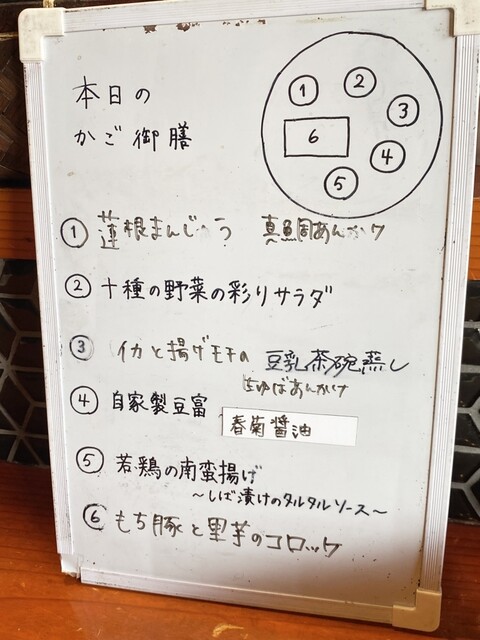 本日の
かご御膳
① ② ③ ④ ⑤ 6
① 蓮根まんじゅう 真鯛あんかけ
② 十種の野菜の彩りサラダ
③ イカと揚げモチの 豆乳茶碗蒸し
ゆばあんかけ
④ 自家製豆富 春菊醤油
⑤ 若鶏の南蛮揚げ
～しば漬けのタルタルソース～
⑥ もち豚と里芋のコロッケ